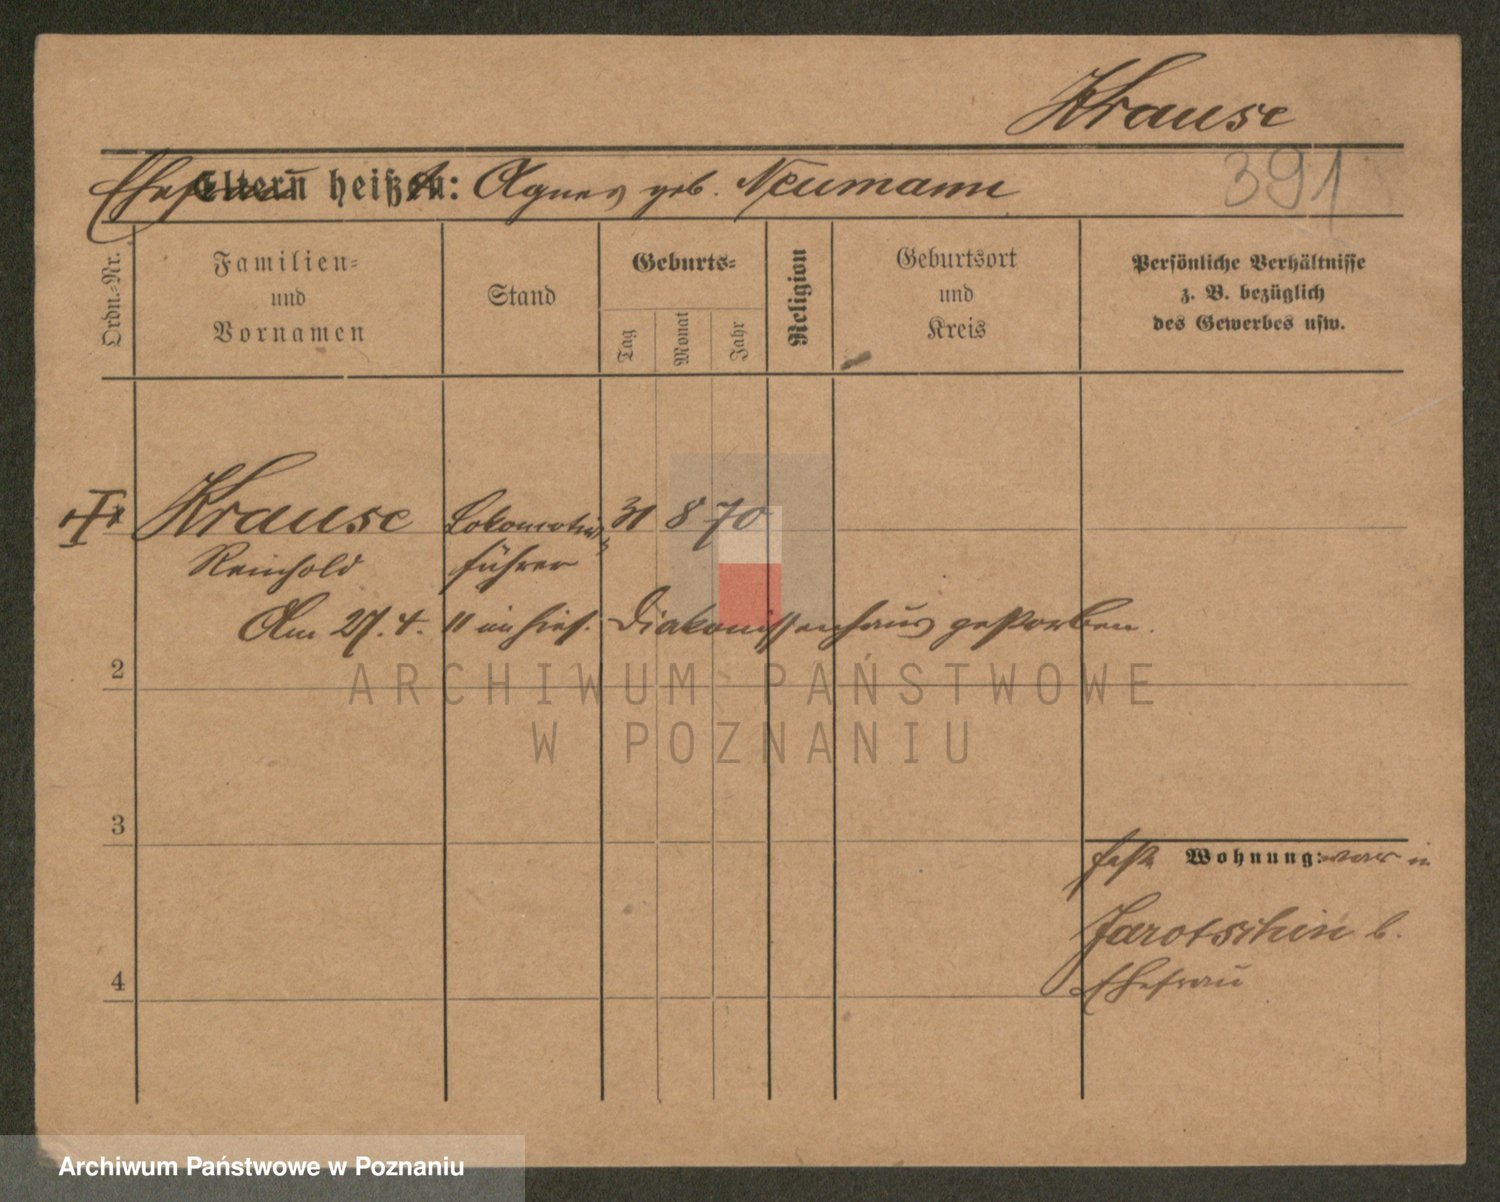 Krause
391
Ehefrau Eltern heißen: Agnes geb. Neumann
Ordn.-Nr.
Familien-
und
Vornamen
Stand
Geburts-
Tag
Monat
Jahr
Religion
Geburtsort
und
Kreis
Persönliche Verhältnisse
z. B. bezüglich
des Gewerbes usw.
Krause Lokomotiv- 31 8 70
Reinhold führer
Am 27. 4. 11 im hies. Diakonissenhaus gestorben.
2
ARCHIWUM PAŃSTWOWE
W POZNANIU
3
feste Wohnung: war in
Jarotschin b.
Ehefrau
4
Archiwum Państwowe w Poznaniu